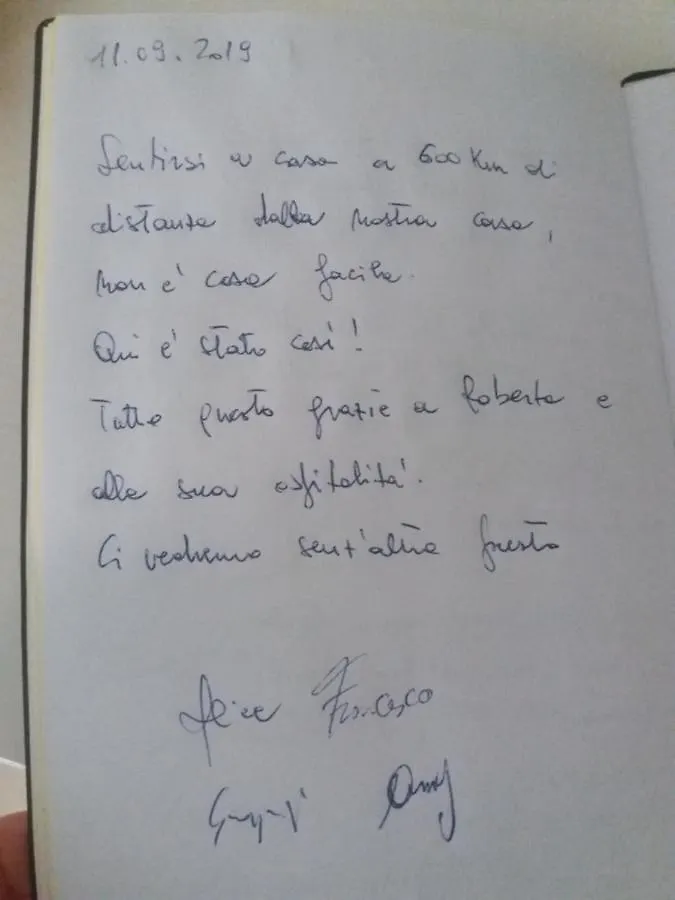 11.09.2019
Sentirsi a casa a 600 Km di
distanza dalla nostra casa,
non è cosa facile.
Qui è stato così!
Tutto questo grazie a Roberta e
alla sua ospitalità.
Ci vedremo senz'altro presto
Francesco